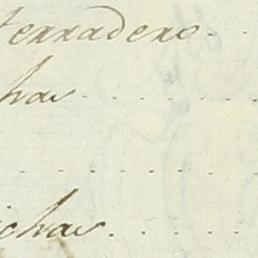 terradero
has
ichas